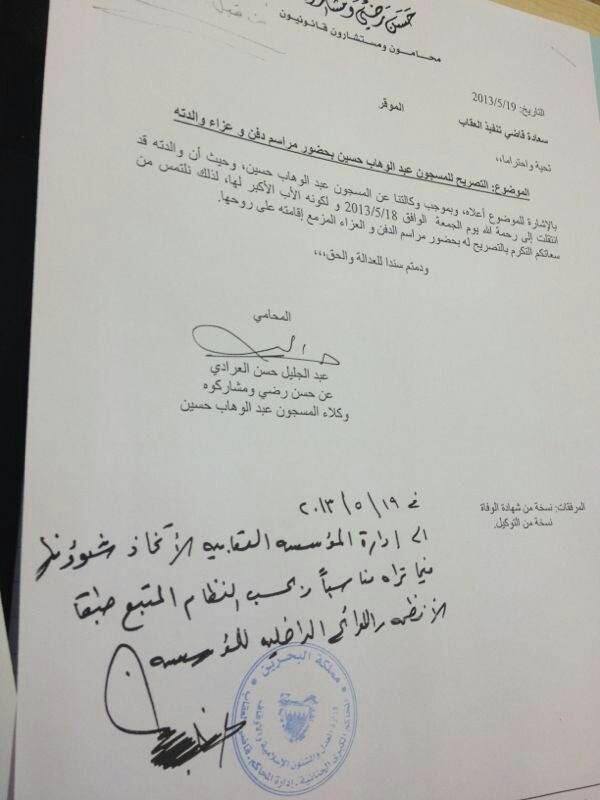 حسن رضي ومشاركوه
محامون ومستشارون قانونيون
التاريخ: 2013/5/19
سعادة قاضي تنفيذ العقاب الموقر
تحية واحتراما،،،
الموضوع: التصريح للمسجون عبد الوهاب حسين بحضور مراسم دفن و عزاء والدته
بالإشارة للموضوع أعلاه، وبموجب وكالتنا عن المسجون عبد الوهاب حسين، وحيث أن والدته قد
انتقلت إلى رحمة الله يوم الجمعة الموافق 2013/5/18 و لكونه الأب الأكبر لها، لذلك نلتمس من
سعادتكم التكرم بالتصريح له بحضور مراسم الدفن و العزاء المزمع إقامته على روحها.
ودمتم سندا للعدالة والحق،،،
المحامي
عبد الجليل حسن العرادي
عن حسن رضي ومشاركوه
وكلاء المسجون عبد الوهاب حسين
المرفقات: نسخة من شهادة الوفاة
نسخة من التوكيل.
في ١٩/٥/٢٠١٣
الى إدارة المؤسسه العقابيه لأتخاذ شؤونها
فيما تراه مناسباً وبحسب النظام المتبع طبقا
لأنظمه واللوائح الداخليه للمؤسسه
مملكة البحرين
وزارة العدل والشئون الإسلامية والأوقاف
المحكمة الكبرى الجنائية - إدارة المحاكم - قاضي تنفيذ العقاب